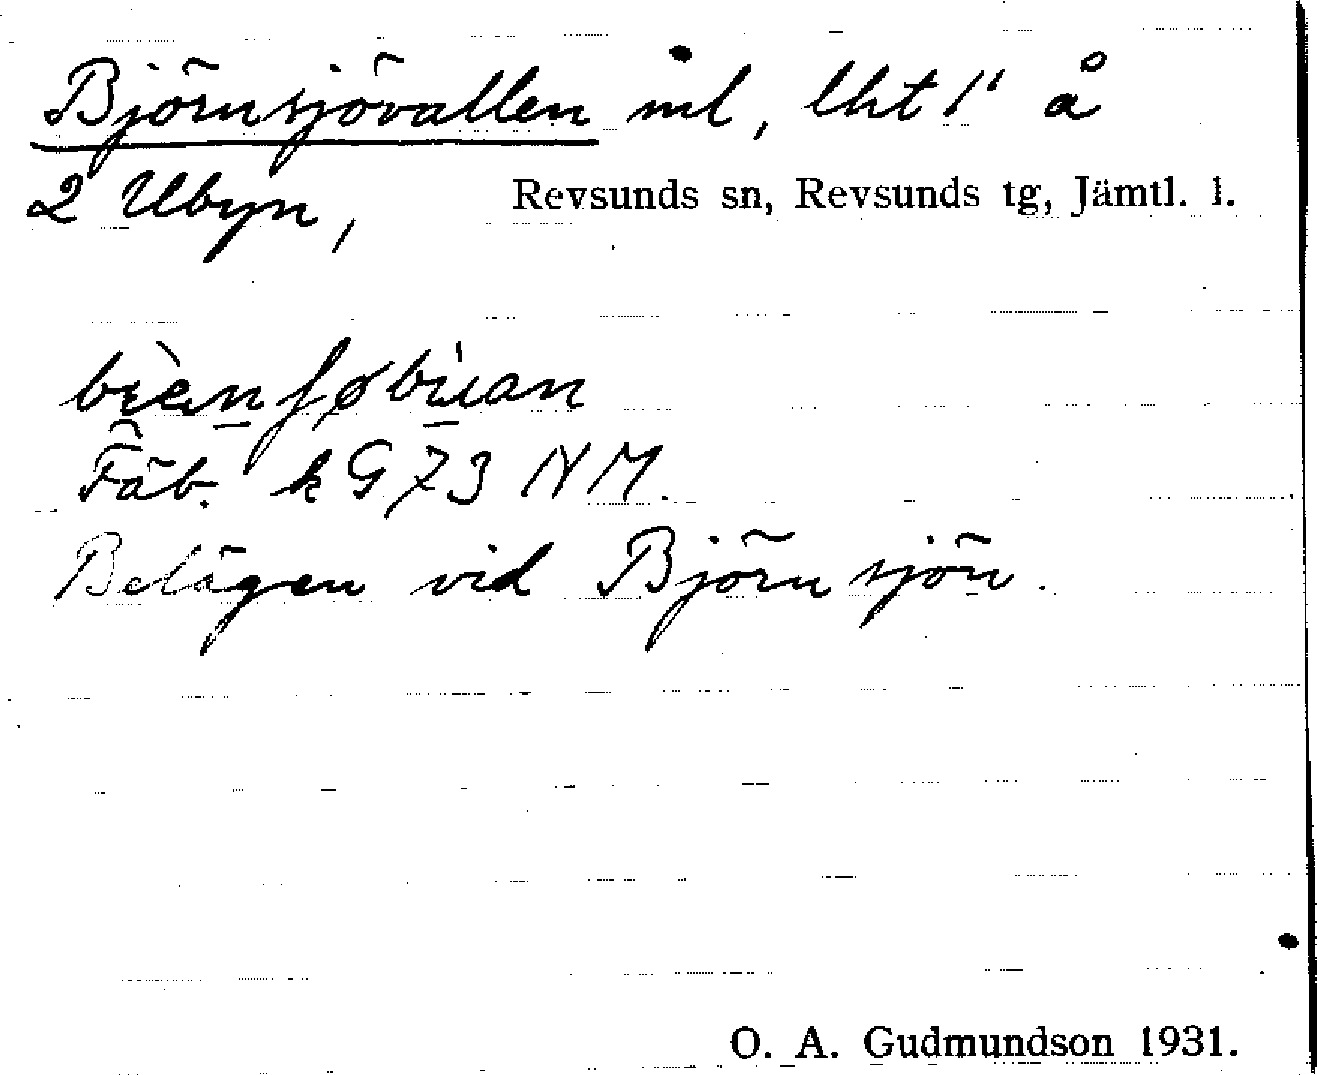 Björnsjövallen ml, lht 1" å
2 Ubyn, Revsunds sn, Revsunds tg, Jämtl. l.
Fäb. k G 73 NM.
Belägen vid Björnsjön.
O. A. Gudmundson 1931.